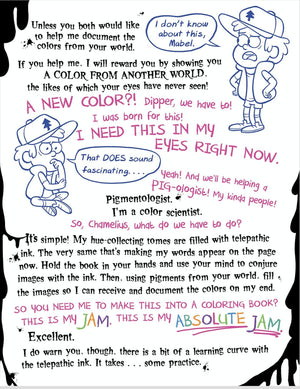 Unless you both would like
to help me document the
colors from your world.
I don't know
about this,
Mabel.
If you help me. I will reward you by showing you
A COLOR FROM ANOTHER WORLD.
the likes of which your eyes have never seen!
A NEW COLOR?! Dipper, we have to!
I was born for this!
I NEED THIS IN MY
EYES RIGHT NOW.
That DOES sound
fascinating. . . .
Yeah! And we'll be helping a
PIG-ologist! My kinda people!
Pigmentologist.
I'm a color scientist.
So, Chamelius, what do we have to do?
It's simple! My hue-collecting tomes are filled with telepathic
ink. The very same that's making my words appear on the page
now. Hold the book in your hands and use your mind to conjure
images with the ink. Then, using pigments from your world, fill
the images so I can receive and document the colors on my end.
SO YOU NEED ME TO MAKE THIS INTO A COLORING BOOK?
THIS IS MY JAM. THIS IS MY ABSOLUTE JAM.
Excellent.
I do warn you, though, there is a bit of a learning curve with
the telepathic ink. It takes . . . some practice.